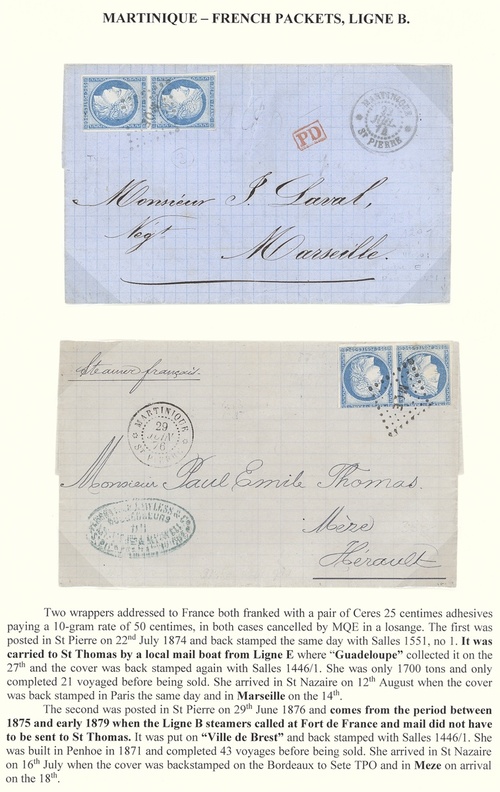 MARTINIQUE – FRENCH PACKETS, LIGNE B.
MARTINIQUE
ST PIERRE
PD
Monsieur J. Laval,
Negt
Marseille.
Steamer français.
MQE
MARTINIQUE
29
JUIN
76
ST PIERRE
Monsieur Paul Emile Thomas.
Mèze
Hérault
Two wrappers addressed to France both franked with a pair of Ceres 25 centimes adhesives
paying a 10-gram rate of 50 centimes, in both cases cancelled by MQE in a losange. The first was
posted in St Pierre on 22nd July 1874 and back stamped the same day with Salles 1551, no 1. It was
carried to St Thomas by a local mail boat from Ligne E where "Guadeloupe" collected it on the
27th and the cover was back stamped again with Salles 1446/1. She was only 1700 tons and only
completed 21 voyaged before being sold. She arrived in St Nazaire on 12th August when the cover
was back stamped in Paris the same day and in Marseille on the 14th.
The second was posted in St Pierre on 29th June 1876 and comes from the period between
1875 and early 1879 when the Ligne B steamers called at Fort de France and mail did not have
to be sent to St Thomas. It was put on "Ville de Brest" and back stamped with Salles 1446/1. She
was built in Penhoe in 1871 and completed 43 voyages before being sold. She arrived in St Nazaire
on 16th July when the cover was backstamped on the Bordeaux to Sete TPO and in Meze on arrival
on the 18th.